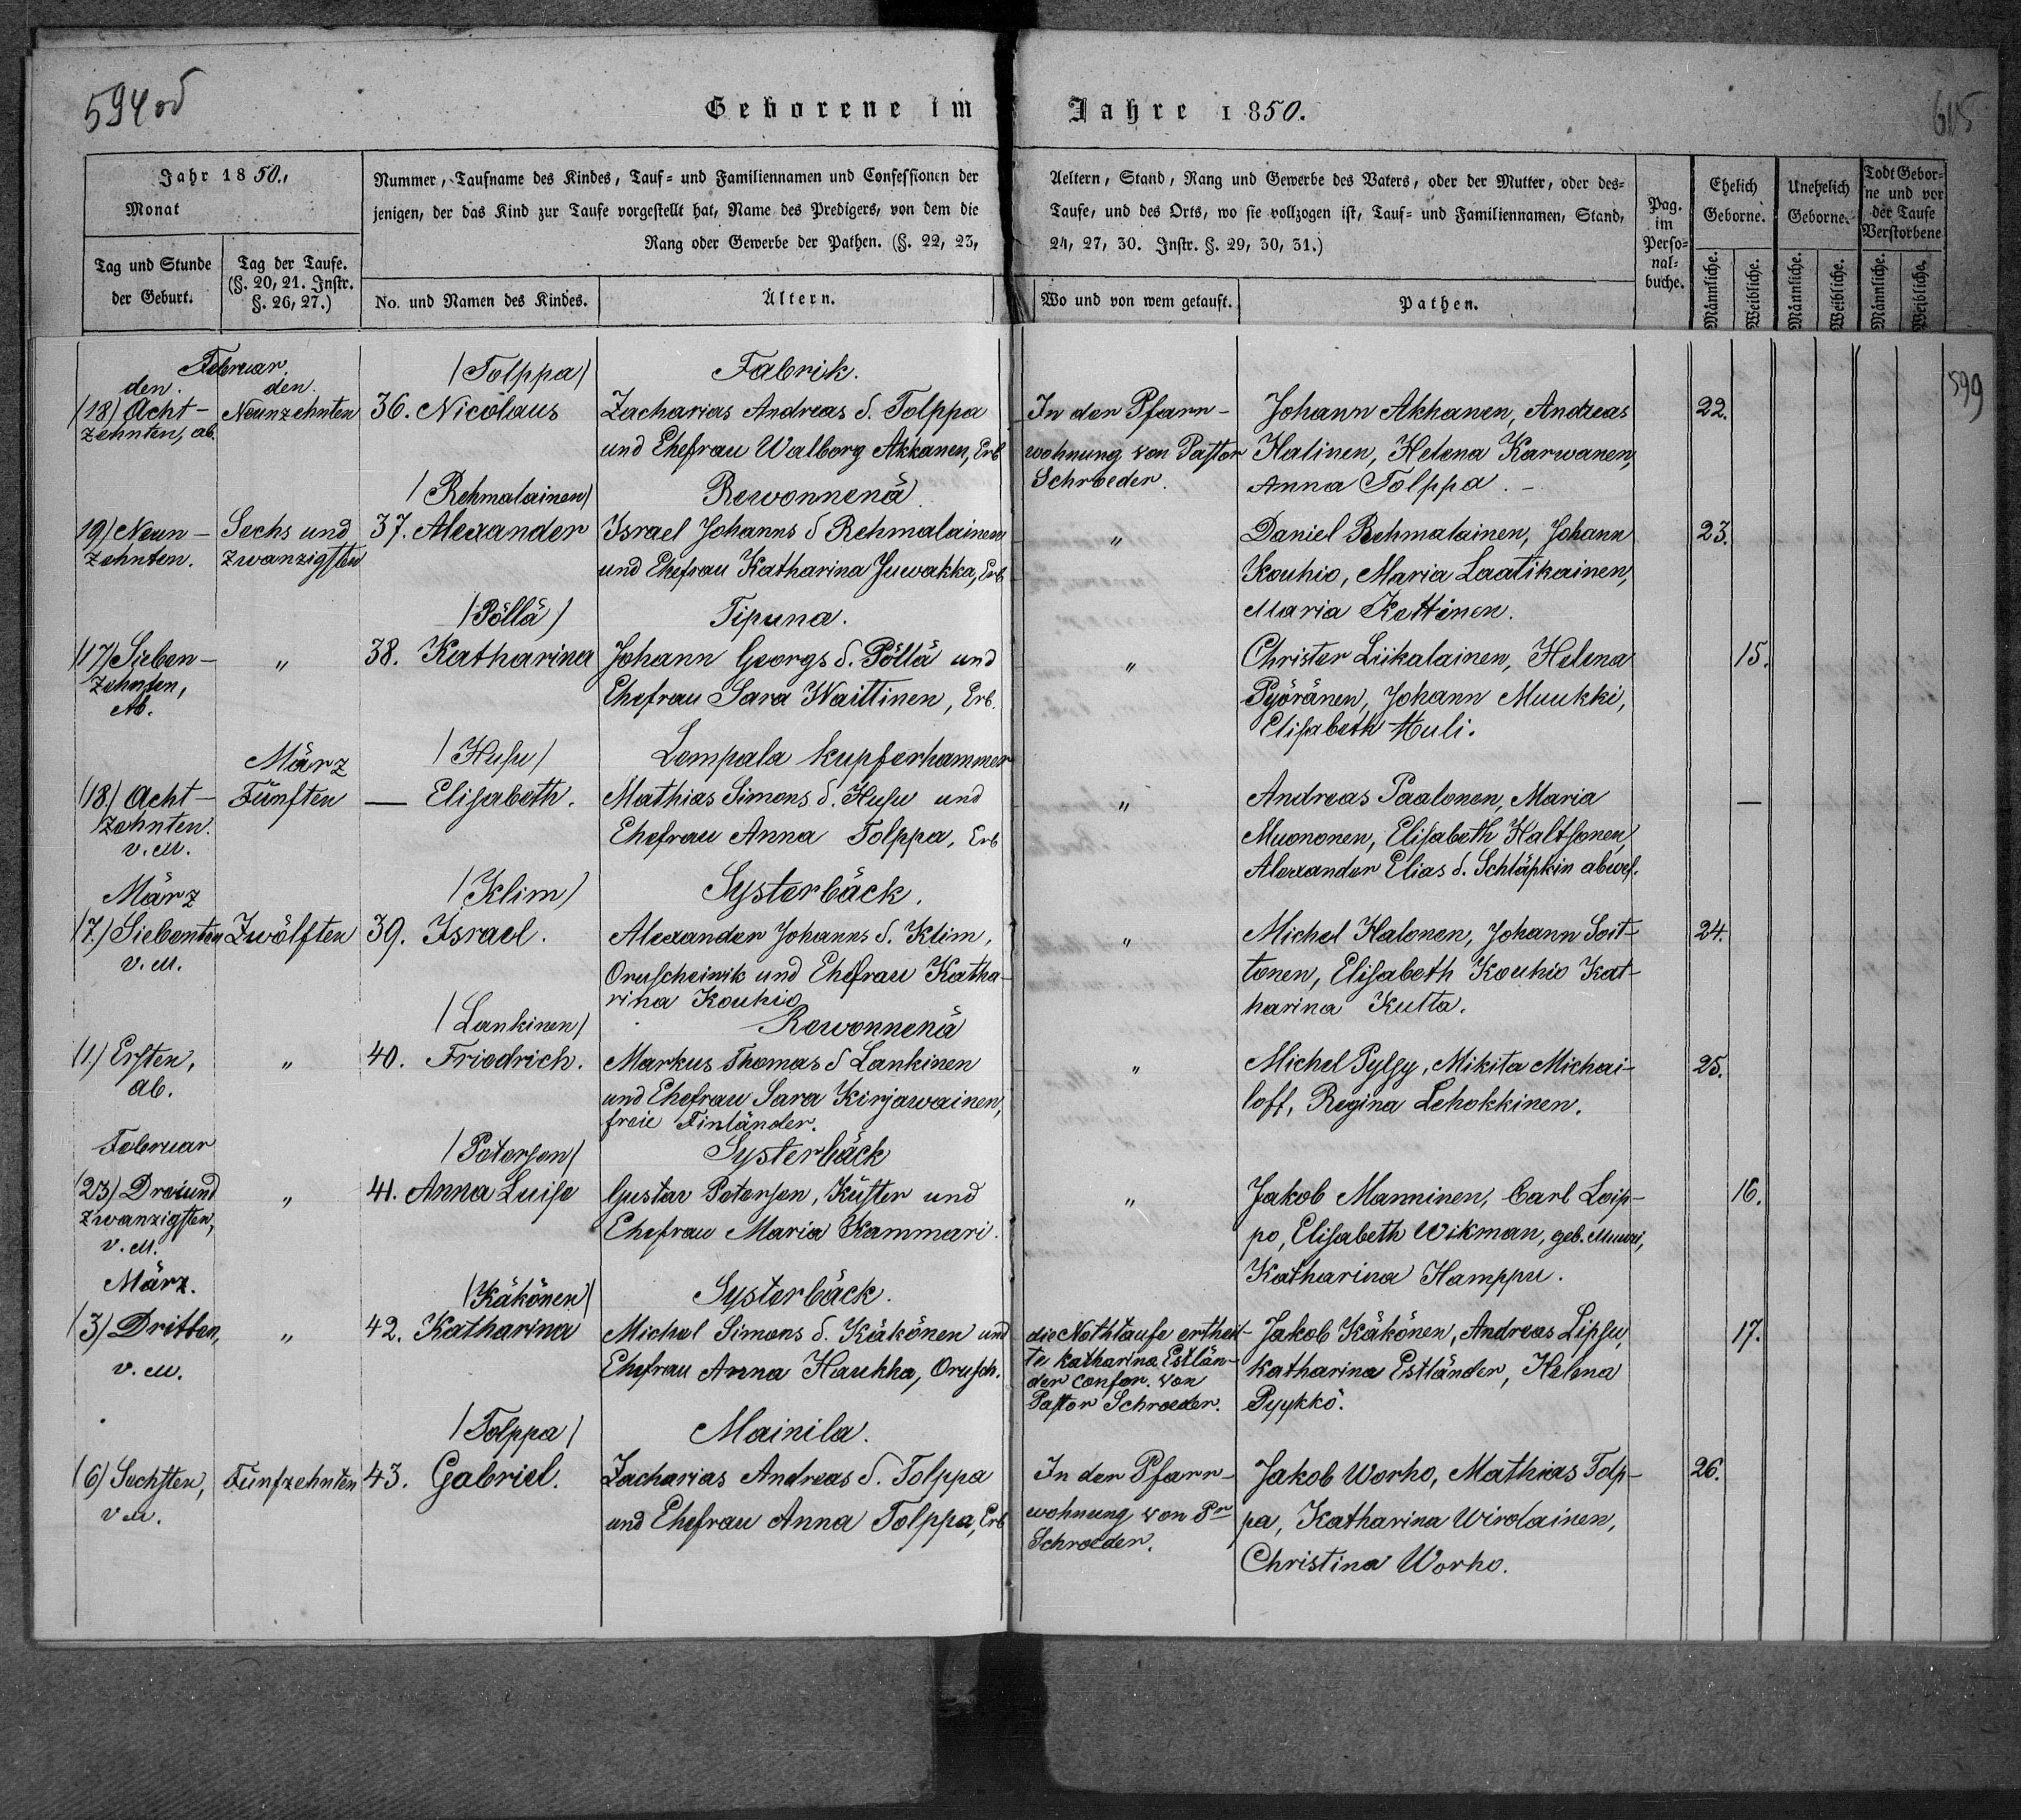 594 od
Geborene im Jahre 1850.
605
599
Jahr 1850.,
Monat
Tag und Stunde
der Geburt.
Tag der Taufe.
(§. 20, 21. Instr.
§. 26, 27.)
Nummer, Taufname des Kindes, Tauf- und Familiennamen und Confessionen der
jenigen, der das Kind zur Taufe vorgestellt hat, Name des Predigers, von dem die
Rang oder Gewerbe der Pathen. (§. 22, 23,
No. und Namen des Kindes.
Ältern.
Aeltern, Stand, Rang und Gewerbe des Vaters, oder der Mutter, oder des-
Taufe, und des Orts, wo sie vollzogen ist, Tauf- und Familiennamen, Stand,
24, 27, 30. Instr. §. 29, 30, 31.)
Wo und von wem getauft.
Pathen.
Pag.
im
Perso-
nal-
buche.
Ehelich
Geborne.
Unehelich
Geborne.
Todt Gebor-
ne und vor
der Taufe
Verstorbene
Männliche.
Weibliche.
Männliche.
Weibliche.
Männliche.
Weibliche.
Februar.
den. den.
(18) Acht-
zehnten, ab.
Neunzehnten
/Tolppa/
36. Nicolaus
Fabrik.
Zacharias Andreas S. Tolppa
und Ehefrau Walborg Akkanen, Erb
In der Pfarr-
wohnung von Pastor
Schroeder.
Johann Akhanen, Andreas
Halinen, Helena Karwanen,
Anna Tolppa. -
22.
19) Neun-
zehnten.
Sechs und
zwanzigsten
/Rehmalainen/
37. Alexander
Rowonnenä
Israel Johanns S Rehmalainen
und Ehefrau Katharina Juwakka, Erb
"
Daniel Rehmalainen, Johann
Kouhio, Maria Laatikainen,
Maria Kottinen.
23.
(17) Sieben-
zehnten,
Ab.
"
/Pöllä/
38. Katharina
Tipuna.
Johann Georgs S. Pöllä und
Ehefrau Sara Waittinen, Erb.
"
Christer Liikalainen, Helena
Pyöränen, Johann Muukki,
Elisabeth Huli.
15.
(18.) Acht-
zehnten.
v. M.
März
Fünften
/Husu/
— Elisabeth.
Lempala Kupferhammer
Mathias Simons S. Husu und
Ehefrau Anna Tolppa, Erb
"
Andreas Paalonen, Maria
Muononen, Elisabeth Haltsonen,
Alexander Elias S. Schläpkin abwes.
—
März
(7.) Siebenten
v. M.
Zwölften
/Klim/
39. Israel.
Systerbäck.
Alexander Johanns S. Klim,
Oruscheinik und Ehefrau Katha-
rina Kouhio
"
Michel Halonen, Johann Soit-
tonen, Elisabeth Kouhio Kat-
harina Kutta.
24.
(1.) Ersten,
ab.
"
/Lankinen/
40. Friedrich.
Rowonnenä
Markus Thomas S Lankinen
und Ehefrau Sara Kirjawainen,
freie Finländer.
"
Michel Pylsy, Mikita Michai-
loff, Regina Lehokkinen.
25.
Februar
(23) Dreiund
zwanzigsten,
v. M.
"
/Petersen/
41. Anna Luise
Systerbäck
Gustav Petersen, Küster und
Ehefrau Maria Kammari.
"
Jakob Manninen, Carl Loip-
po, Elisabeth Wikman, geb. Muuri,
Katharina Hamppu.
16.
März.
(3) Dritten,
v. M.
"
/Käkönen/
42. Katharina
Systerbäck.
Michel Simons S. Käkönen und
Ehefrau Anna Haukka, Orusch.
die Nothtaufe ertheil-
te Katharina Estlän-
der confer. von
Pastor Schroeder.
Jakob Käkönen, Andreas Lipsu,
Katharina Estländer, Helena
Pyykkö.
17.
(6) Sechsten,
v M.
Fünfzehnten
/Tolppa/
43. Gabriel.
Mainila.
Zacharias Andreas S. Tolppa
und Ehefrau Anna Tolppa, Erb
In der Pfarr-
wohnung von Pr
Schroeder.
Jakob Worho, Mathias Tolp-
pa, Katharina Wirolainen,
Christina Worho.
26.